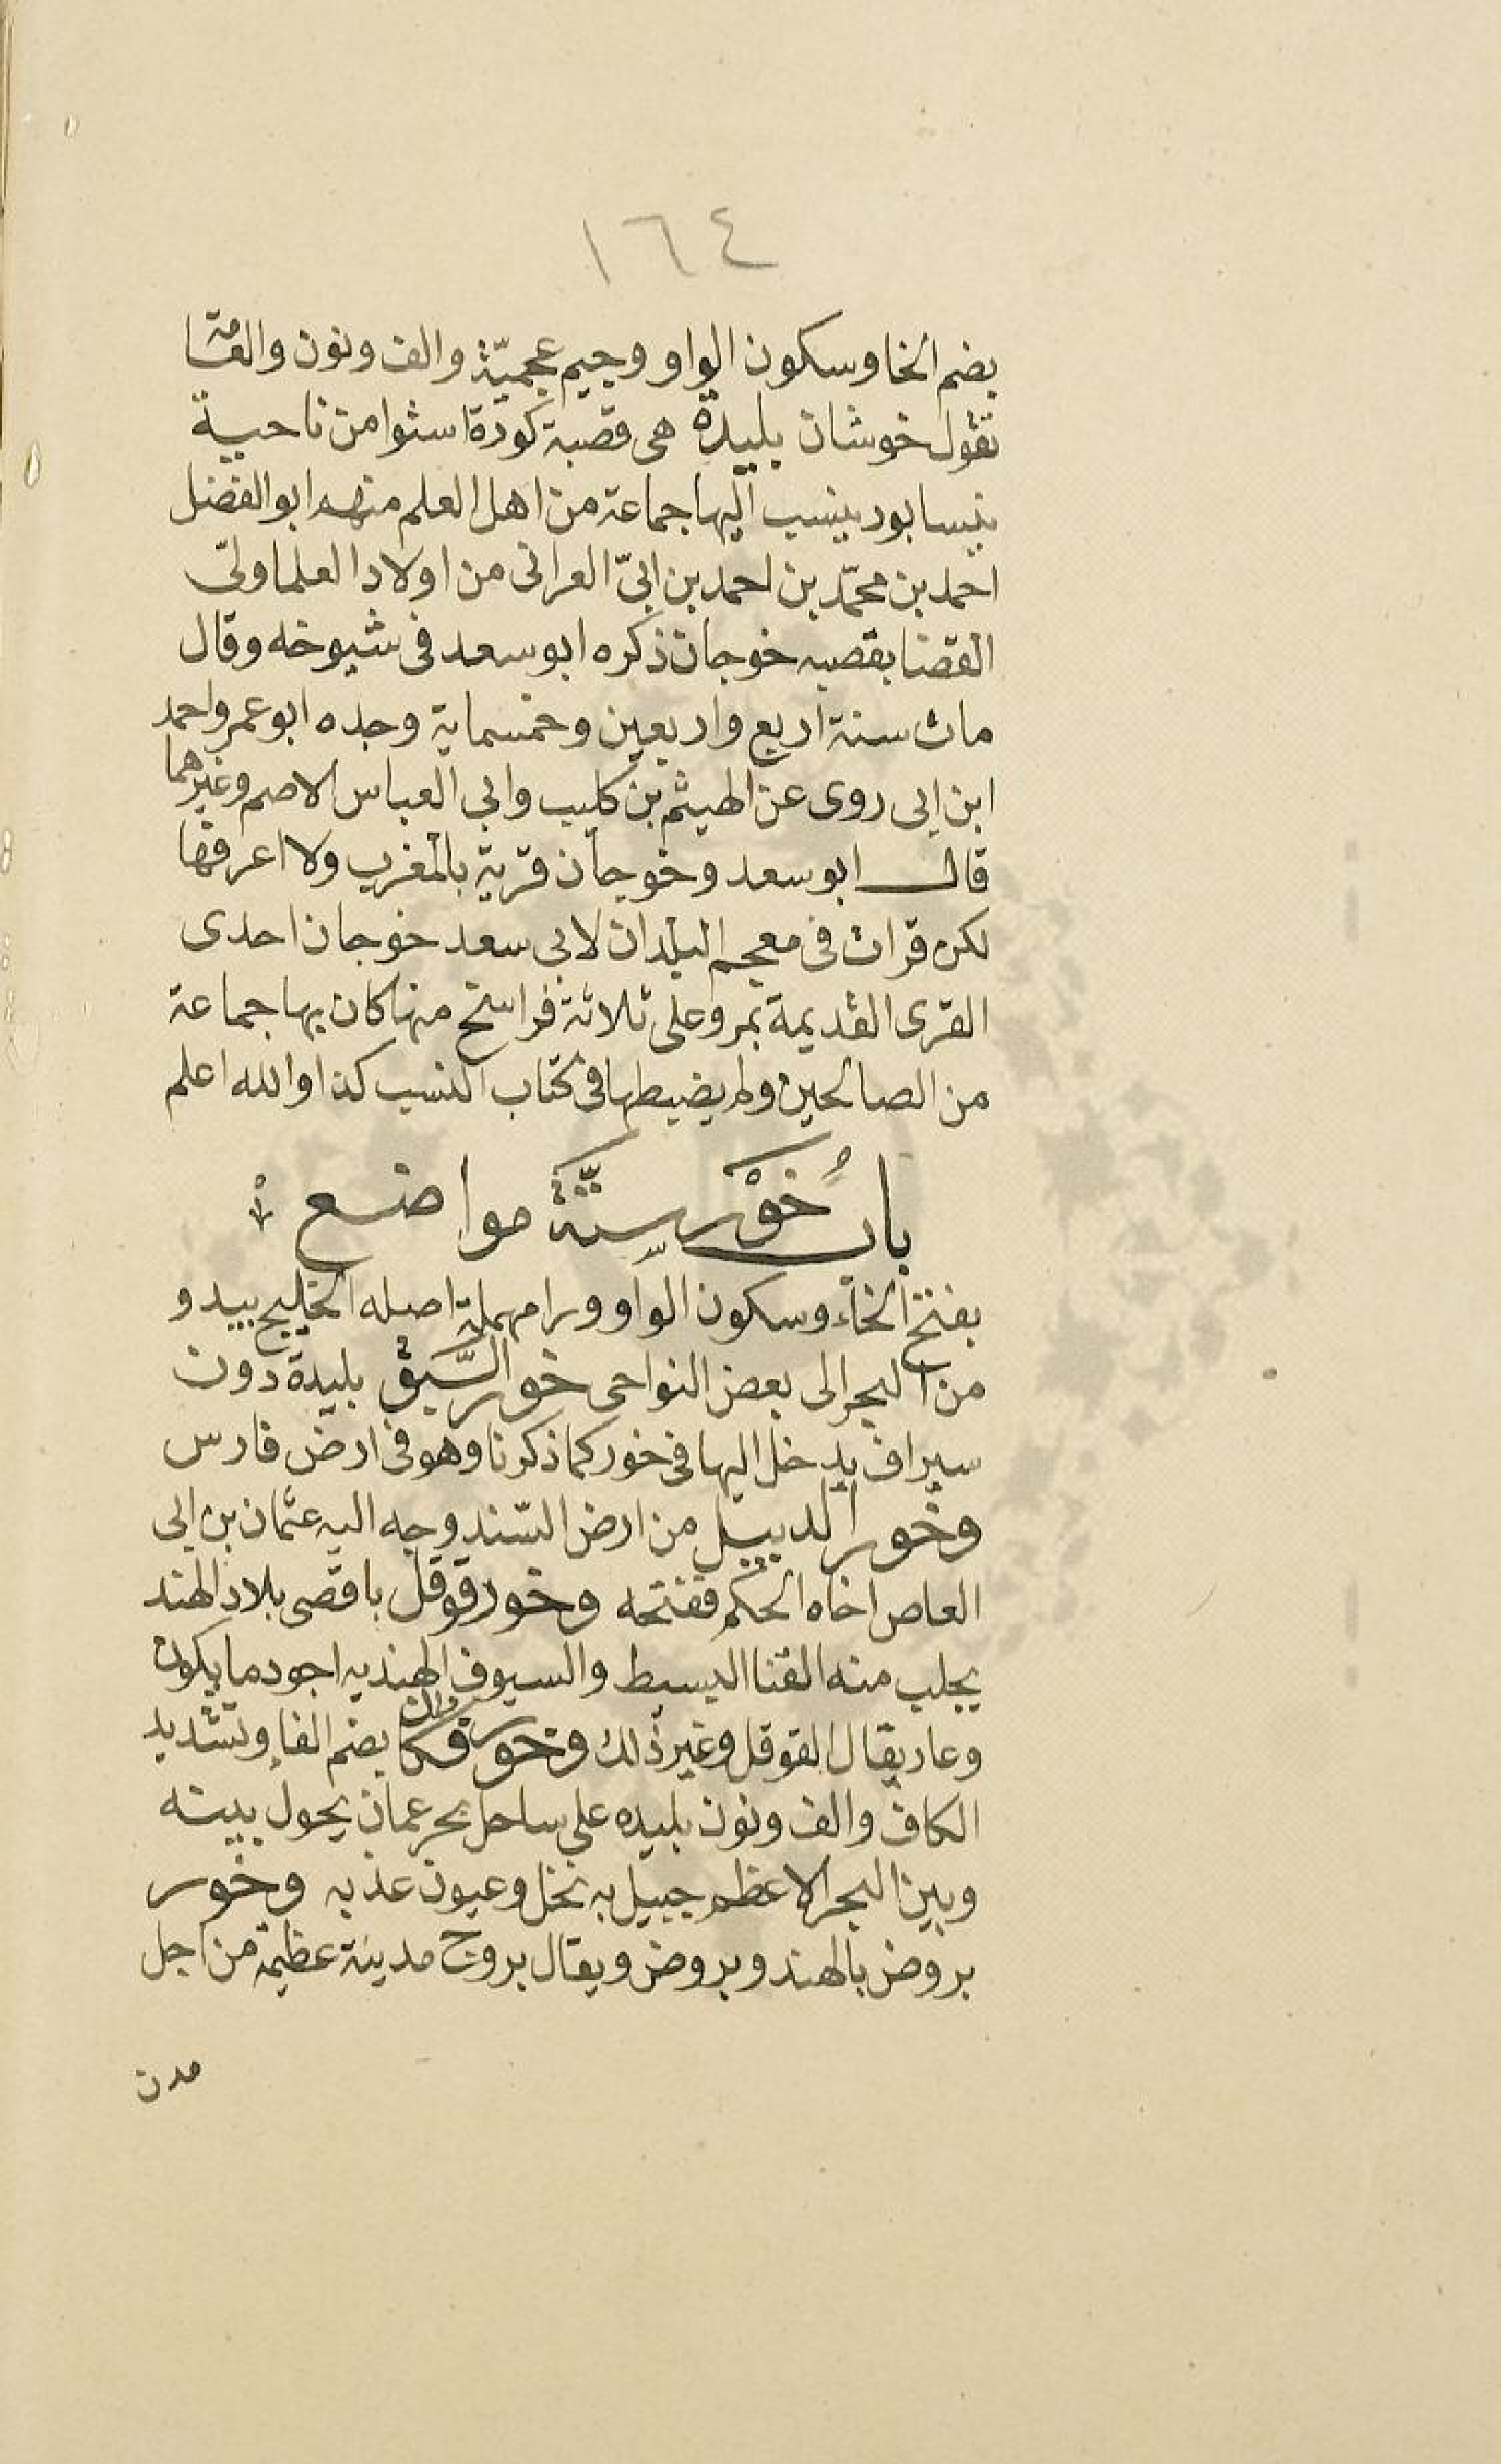 ١٦٤
بضم الخا وسكون الواو وجيم عجميّة والف ونون والعامّة
تقول خوشان بليدة هى قصبة كورة استوا من ناحية
نيسابور ينسب اليها جماعة من اهل العلم منهم ابو الفضل
احمد بن محمّد بن احمد بن ابىّ العراتى من اولاد العلما ولىّ
القضا بقصبه خوجان ذكره ابو سعد فى شيوخه وقال
مات سنة اربع واربعين وخمسماية وجده ابو عمرو احمد
ابن ابى روى عن الهيثم بن كليب وابي العباس الاصم وغيرهما
قال ابو سعد وخوجان قرية بالمغرب ولا اعرفها
لكن قرات فى معجم البلدان لابى سعد خوجان احدى
القرى القديمة بمرو على ثلاثة فراسخ منها كان بها جماعة
من الصالحين ولم يضبطها فى كتاب النسب كذا والله اعلم
باب خَوْر ستّة مواضع
بفتح الخاء وسكون الواو ورا مهملة اصله الخليج يبدو
من البحر الى بعض النواحى خور السَّيق بليدة دون
سيراف يدخل اليها فى خور كما ذكرنا وهو فى ارض فارس
وخور الديبل من ارض السّند وجه اليه عثمان بن ابى
العاص اخاه الحكم ففتحه وخور قوقل باقصى بلاد الهند
يجلب منه القنا البسط والسيوف الهنديه اجود ما يكون
وعار يقال القوقل وغير ذلك وخور فكان بضم الفاء وتشديد
الكاف والف ونون بليده على ساحل بحر عمان يحول بينه
وبين البحر الاعظم جبيل به نخل وعيون عذبه وخور
بروض بالهند وبروض ويقال بروح مدينة عظيمة من اجل
مدن